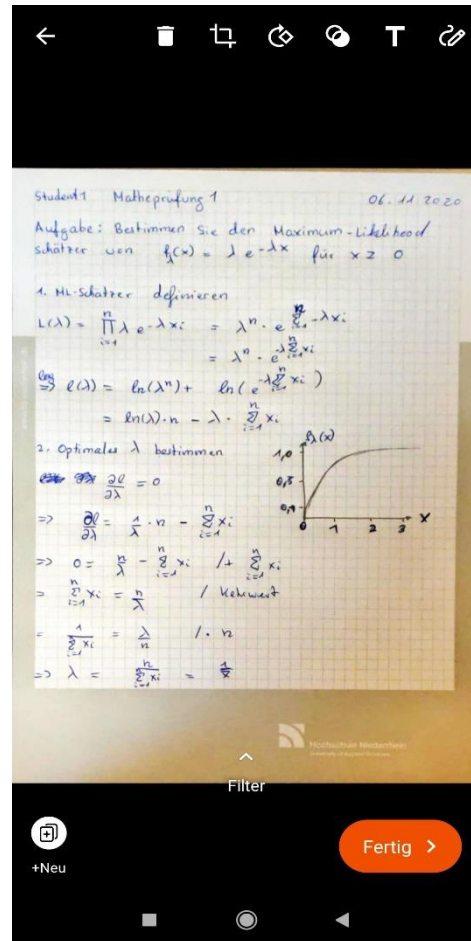 T
Student1 Matheprüfung 1 06.11.2020
Aufgabe: Bestimmen Sie den Maximum-Likelihood
schätzer von fλ(x) = λ e^-λx für x ≥ 0
1. ML-Schätzer definieren
L(λ) = ∏_{i=1}^{n} λ e^-λxi = λ^n · e^{∑_{i=1}^{n} -λxi}
= λ^n · e^{-λ∑_{i=1}^{n} xi}
log
=> l(λ) = ln(λ^n) + ln(e^{-λ∑_{i=1}^{n} xi})
= ln(λ)·n - λ · ∑_{i=1}^{n} xi
2. Optimales λ bestimmen
∂l/∂λ = 0
=> ∂l/∂λ = 1/λ · n - ∑_{i=1}^{n} xi
=> 0 = n/λ - ∑_{i=1}^{n} xi /+ ∑_{i=1}^{n} xi
= ∑_{i=1}^{n} xi = n/λ / Kehrwert
= 1/∑_{i=1}^{n} xi = λ/n / · n
=> λ = n/∑_{i=1}^{n} xi = 1/x̄
fλ(x)
1,0
0,5
0,1
0 1 2 3 x
Hochschule Niederrhein
University of Applied Sciences
Filter
+Neu
Fertig